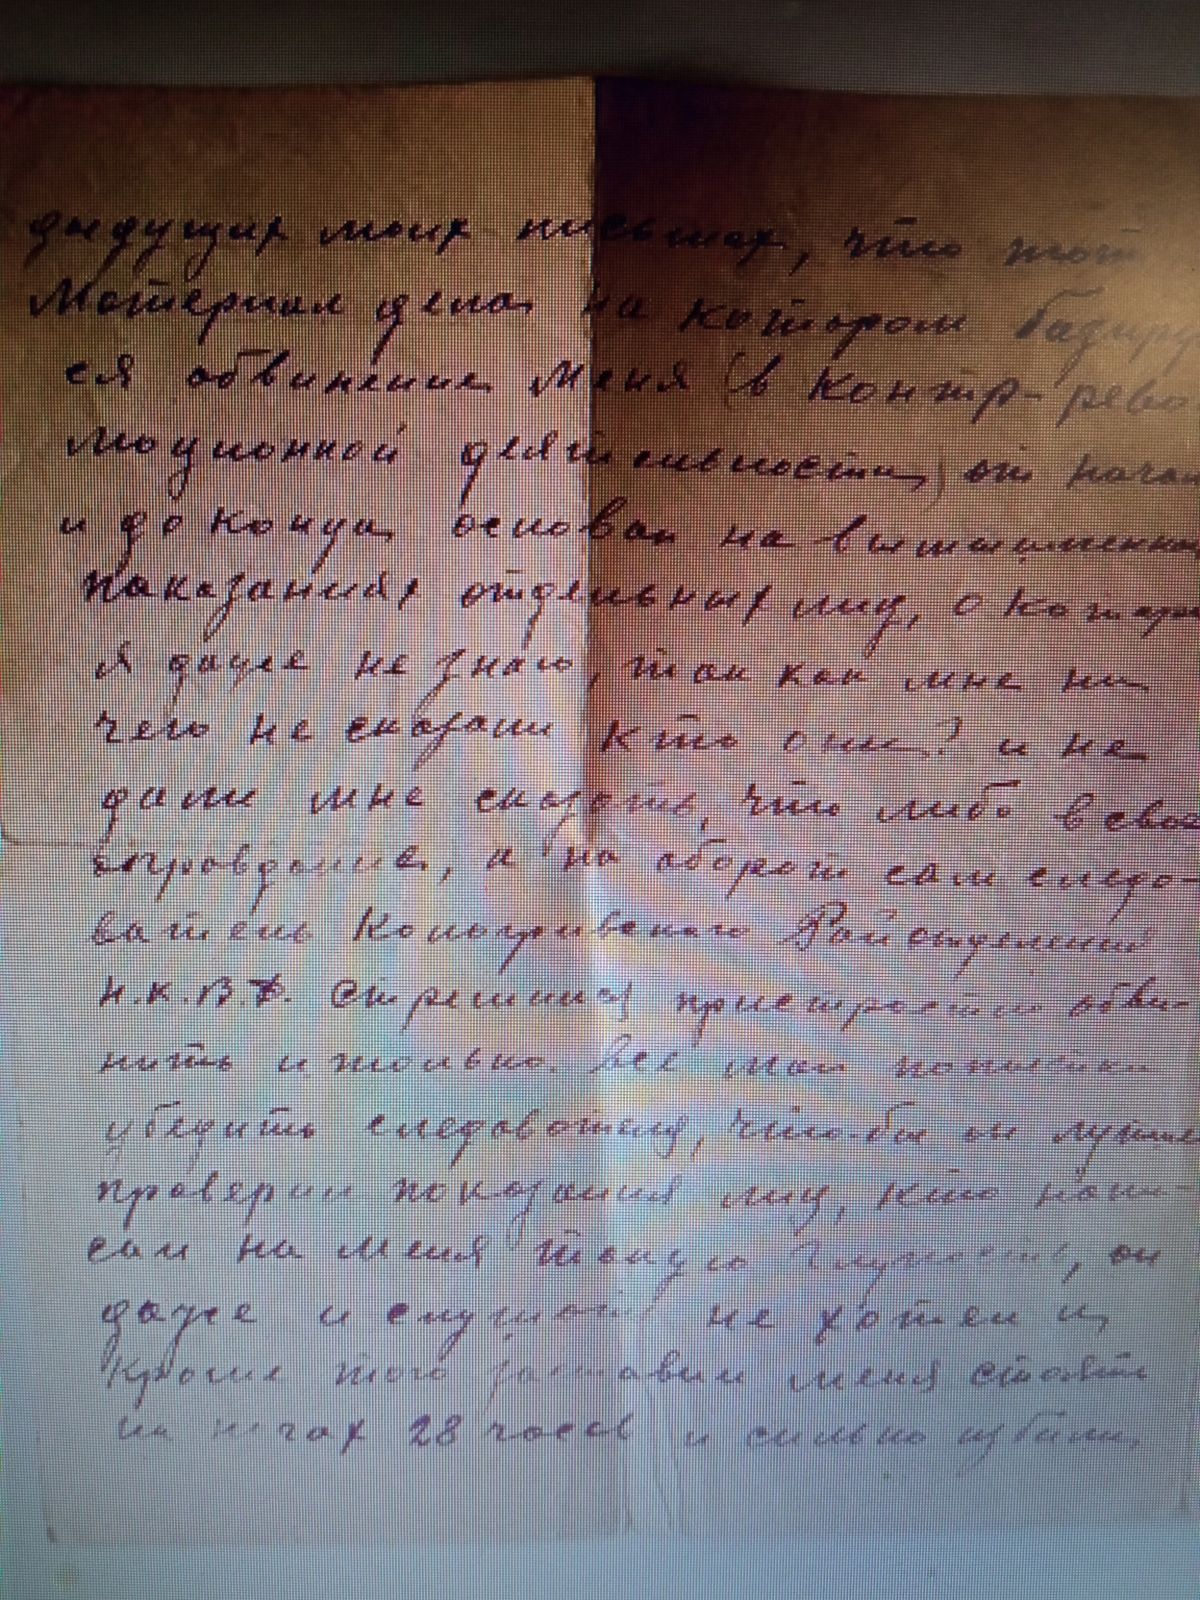 дыдущих моих письмах, что тот
Материал дела, на котором базиру
ся обвинение меня (в контр-рево
люционной деятельности) от нача
и до конца, основан на вымышленны
показаниях отдельных лиц, о котор
я даже не знаю, так как мне ни
чего не сказали кто они? и не
дали мне сказать, что либо в свое
оправдание, а на оборот сам следо-
ватель Райотделения
Н.К.В.Д. обви-
нить и только. Все мои попытки
убедить следователя, что-бы он лутше
проверил показания лиц, кто напи-
сал на меня такую глупость, он
даже и слушать не хотел и,
кроме того заставил меня стоять
на ногах 28 часов и сильно избили,